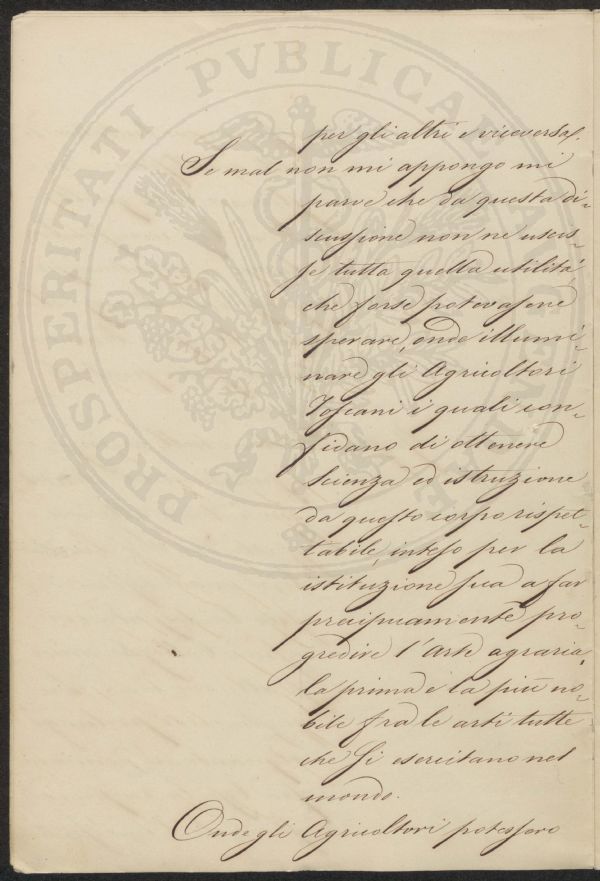 per gli altri e viceversa.
Se mal non mi appongo mi
parve che da questa di-
scussione non ne uscis-
se tutta quella utilità
che forse potevasene
sperare, onde illumi-
nare gli Agricoltori
Toscani i quali con-
fidano di ottenere
scienza ed istruzione
da questo corpo rispet-
tabile, inteso per la
istituzione sua a far
precipuamente pro-
gredire l'arte agraria,
la prima e la più no-
bile fra le arti tutte
che si esercitano nel
mondo.
Onde gli Agricoltori potessero
PROSPERITATI PVBLICAE